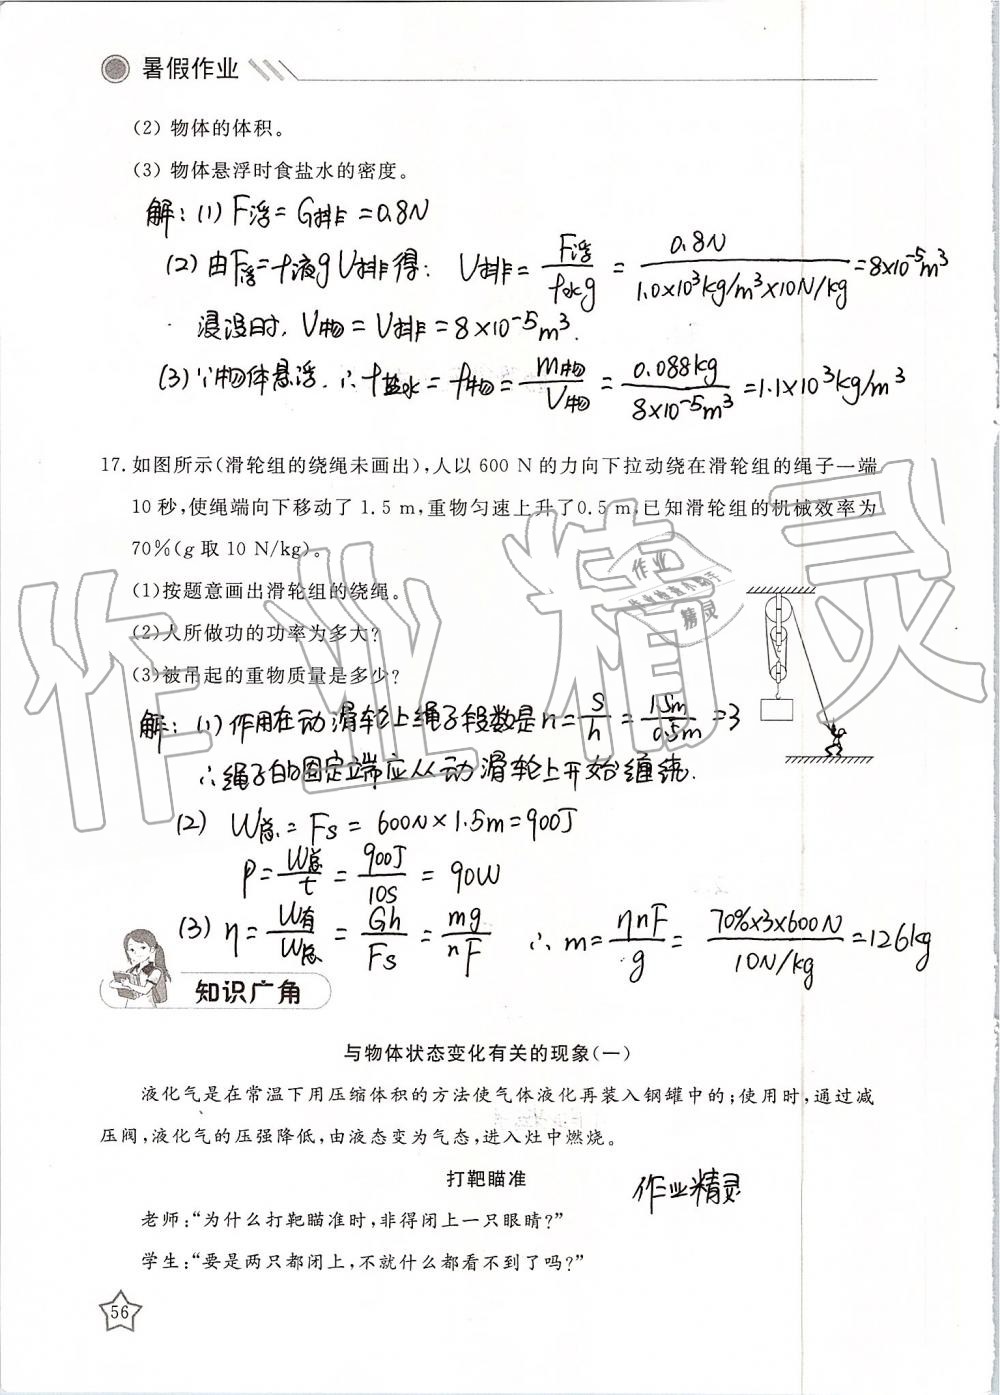 暑假作业
(2) 物体的体积。
(3) 物体悬浮时食盐水的密度。
解:(1) F浮=G排=0.8N
(2)由F浮=ρ液gV排得: V排=F浮/ρ水g=0.8N/1.0×10³kg/m³×10N/kg=8×10⁻⁵m³
浸没时, V物=V排=8×10⁻⁵m³.
(3)∵物体悬浮.∴ρ盐水=ρ物=m物/V物=0.088kg/8×10⁻⁵m³=1.1×10³kg/m³
17. 如图所示(滑轮组的绕绳未画出),人以 600 N 的力向下拉动绕在滑轮组的绳子一端
10 秒,使绳端向下移动了 1.5 m,重物匀速上升了0.5 m,已知滑轮组的机械效率为
70%(g 取 10 N/kg)。
(1)按题意画出滑轮组的绕绳。
(2)人所做功的功率为多大?
(3)被吊起的重物质量是多少?
解:(1)作用在动滑轮上绳子段数是n=s/h=1.5m/0.5m=3
∴绳子的固定端应从动滑轮上开始缠绕.
(2) W总=Fs=600N×1.5m=900J
P=W总/t=900J/10s=90W
(3) η=W有/W总=Gh/Fs=mg/nF ∴m=ηnF/g=70%×3×600N/10N/kg=126kg
知识广角
与物体状态变化有关的现象(一)
液化气是在常温下用压缩体积的方法使气体液化再装入钢罐中的;使用时,通过减
压阀,液化气的压强降低,由液态变为气态,进入灶中燃烧。
打靶瞄准
作业精灵
老师:“为什么打靶瞄准时,非得闭上一只眼睛?”
学生:“要是两只都闭上,不就什么都看不到了吗?”
56
作业精灵
作业
精灵